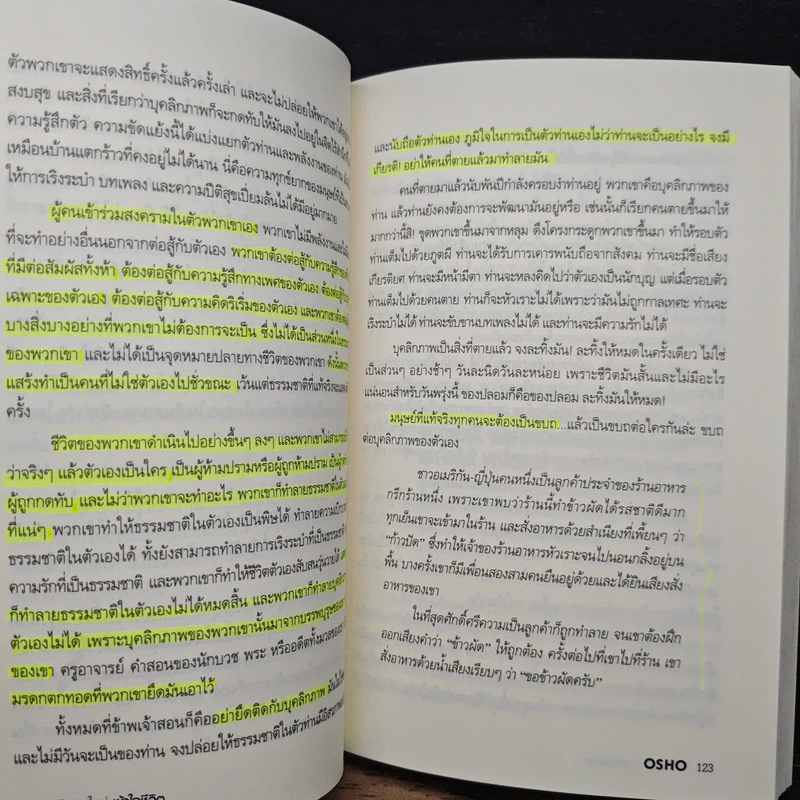 ตัวพวกเขาจะแสดงสิทธิ์ครั้งแล้วครั้งเล่า และจะไม่ปล่อยให้พวกเขา
สงบสุข และสิ่งที่เรียกว่าบุคลิกภาพก็จะกดทับให้มันลงไปอยู่ใน
ความรู้สึกตัว ความขัดแย้งนี้ได้แบ่งแยกตัวท่านและพลังงานของท่าน
เหมือนบ้านแตกร้าวที่คงอยู่ไม่ได้นาน นี่คือความทุกข์ยากของมนุษย์
ให้การเริงระบำ บทเพลง และความปีติสุขเปี่ยมล้นไม่ได้มีอยู่มากมาย
ผู้คนเข้าร่วมสงครามในตัวพวกเขาเอง พวกเขาไม่มีพลังงาน
ที่จะทำอย่างอื่นนอกจากต่อสู้กับตัวเอง พวกเขาต้องต่อสู้กับความรู้สึก
ที่มีต่อสัมผัสทั้งห้า ต้องต่อสู้กับความรู้สึกทางเพศของตัวเอง ต้องต่อสู้กับ
เฉพาะของตัวเอง ต้องต่อสู้กับความคิดริเริ่มของตัวเอง และพวกเขาต้อง
บางสิ่งบางอย่างที่พวกเขาไม่ต้องการจะเป็น ซึ่งไม่ได้เป็นส่วนหนึ่ง
ของพวกเขา และไม่ได้เป็นจุดหมายปลายทางชีวิตของพวกเขา ดังนั้น
แสร้งทำเป็นคนที่ไม่ใช่ตัวเองไปชั่วขณะ เว้นแต่ธรรมชาติที่แท้จริงจะ
ครั้ง
ชีวิตของพวกเขาดำเนินไปอย่างขึ้นๆ ลงๆ และพวกเขาไม่สามารถ
ว่าจริงๆ แล้วตัวเองเป็นใคร เป็นผู้ห้ามปรามหรือผู้ถูกห้ามปราม เป็นผู้
ผู้ถูกกดทับ และไม่ว่าพวกเขาจะทำอะไร พวกเขาก็ทำลายธรรมชาติใน
ที่แน่ๆ พวกเขาทำให้ธรรมชาติในตัวเองเป็นพิษได้ ทำลายความ
ธรรมชาติในตัวเองได้ ทั้งยังสามารถทำลายการเริงระบำที่เป็นธรรมชาติ
ความรักที่เป็นธรรมชาติ และพวกเขาก็ทำให้ชีวิตตัวเองสับสนวุ่นวายได้
ก็ทำลายธรรมชาติในตัวเองไม่ได้หมดสิ้น และพวกเขาก็ทำลายบุคลิก
ตัวเองไม่ได้ เพราะบุคลิกภาพของพวกเขานั้นมาจากบรรพบุรุษของ
ของเขา ครูอาจารย์ คำสอนของนักบวช พระ หรืออดีตทั้งมวลของ
มรดกตกทอดที่พวกเขายึดมันเอาไว้
ทั้งหมดที่ข้าพเจ้าสอนก็คืออย่ายึดติดกับบุคลิกภาพ
และไม่มีวันจะเป็นของท่าน จงปล่อยให้ธรรมชาติในตัวท่านมีอิสรภาพ
และนับถือตัวท่านเอง ภูมิใจในการเป็นตัวท่านเองไม่ว่าท่านจะเป็นอย่างไร จงมี
เกียรติ! อย่าให้คนที่ตายแล้วมาทำลายมัน
คนที่ตายมาแล้วนับพันปีกำลังครอบงำท่านอยู่ พวกเขาคือบุคลิกภาพของ
ท่าน แล้วท่านยังคงต้องการจะพัฒนามันอยู่หรือ เช่นนั้นก็เรียกคนตายขึ้นมาให้
มากกว่านี้สิ! ขุดพวกเขาขึ้นมาจากหลุม ดึงโครงกระดูกพวกเขาขึ้นมา ทำให้รอบตัว
ท่านเต็มไปด้วยภูตผี ท่านจะได้รับการเคารพนับถือจากสังคม ท่านจะมีชื่อเสียง
เกียรติยศ ท่านจะมีหน้ามีตา ท่านจะหลงคิดไปว่าตัวเองเป็นนักบุญ แต่เมื่อรอบตัว
ท่านเต็มไปด้วยคนตาย ท่านก็จะหัวเราะไม่ได้เพราะว่ามันไม่ถูกกาลเทศะ ท่านจะ
เริงระบำไม่ได้ ท่านจะขับขานบทเพลงไม่ได้ และท่านจะมีความรักไม่ได้
บุคลิกภาพเป็นสิ่งที่ตายแล้ว จงละทิ้งมัน! ละทิ้งให้หมดในครั้งเดียว ไม่ใช่
เป็นส่วนๆ อย่างช้าๆ วันละนิดวันละหน่อย เพราะชีวิตมันสั้นและไม่มีอะไร
แน่นอนสำหรับวันพรุ่งนี้ ของปลอมก็คือของปลอม ละทิ้งมันให้หมด!
มนุษย์ที่แท้จริงทุกคนจะต้องเป็นขบถ...แล้วเป็นขบถต่อใครกันล่ะ ขบถ
ต่อบุคลิกภาพของตัวเอง
ชาวอเมริกัน-ญี่ปุ่นคนหนึ่งเป็นลูกค้าประจำของร้านอาหาร
กรีกร้านหนึ่ง เพราะเขาพบว่าร้านนี้ทำข้าวผัดได้รสชาติดีมาก
ทุกเย็นเขาจะเข้ามาในร้าน และสั่งอาหารด้วยสำเนียงที่เพี้ยนๆ ว่า
“ก้าวปัด” ซึ่งทำให้เจ้าของร้านอาหารหัวเราะจนไปนอนกลิ้งอยู่บน
พื้น บางครั้งเขาก็มีเพื่อนสองสามคนยืนอยู่ด้วยและได้ยินเสียงสั่ง
อาหารของเขา
ในที่สุดศักดิ์ศรีความเป็นลูกค้าก็ถูกทำลาย จนเขาต้องฝึก
ออกเสียงคำว่า “ข้าวผัด” ให้ถูกต้อง ครั้งต่อไปที่เขาไปที่ร้าน เขา
สั่งอาหารด้วยน้ำเสียงเรียบๆ ว่า “ขอข้าวผัดครับ”
OSHO 123